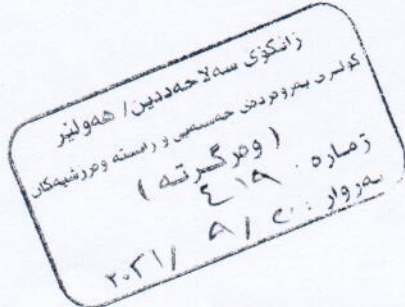 زانکۆی سەلاحەددین/ هەولێر
کۆلیژی پەروەردەی جەستەیی و زانستە وەرزشیەکان
( وەرگرتە )
ژمارە : ٤١٩
بەروار : ٢٠ / ٨ / ٢٠٢١